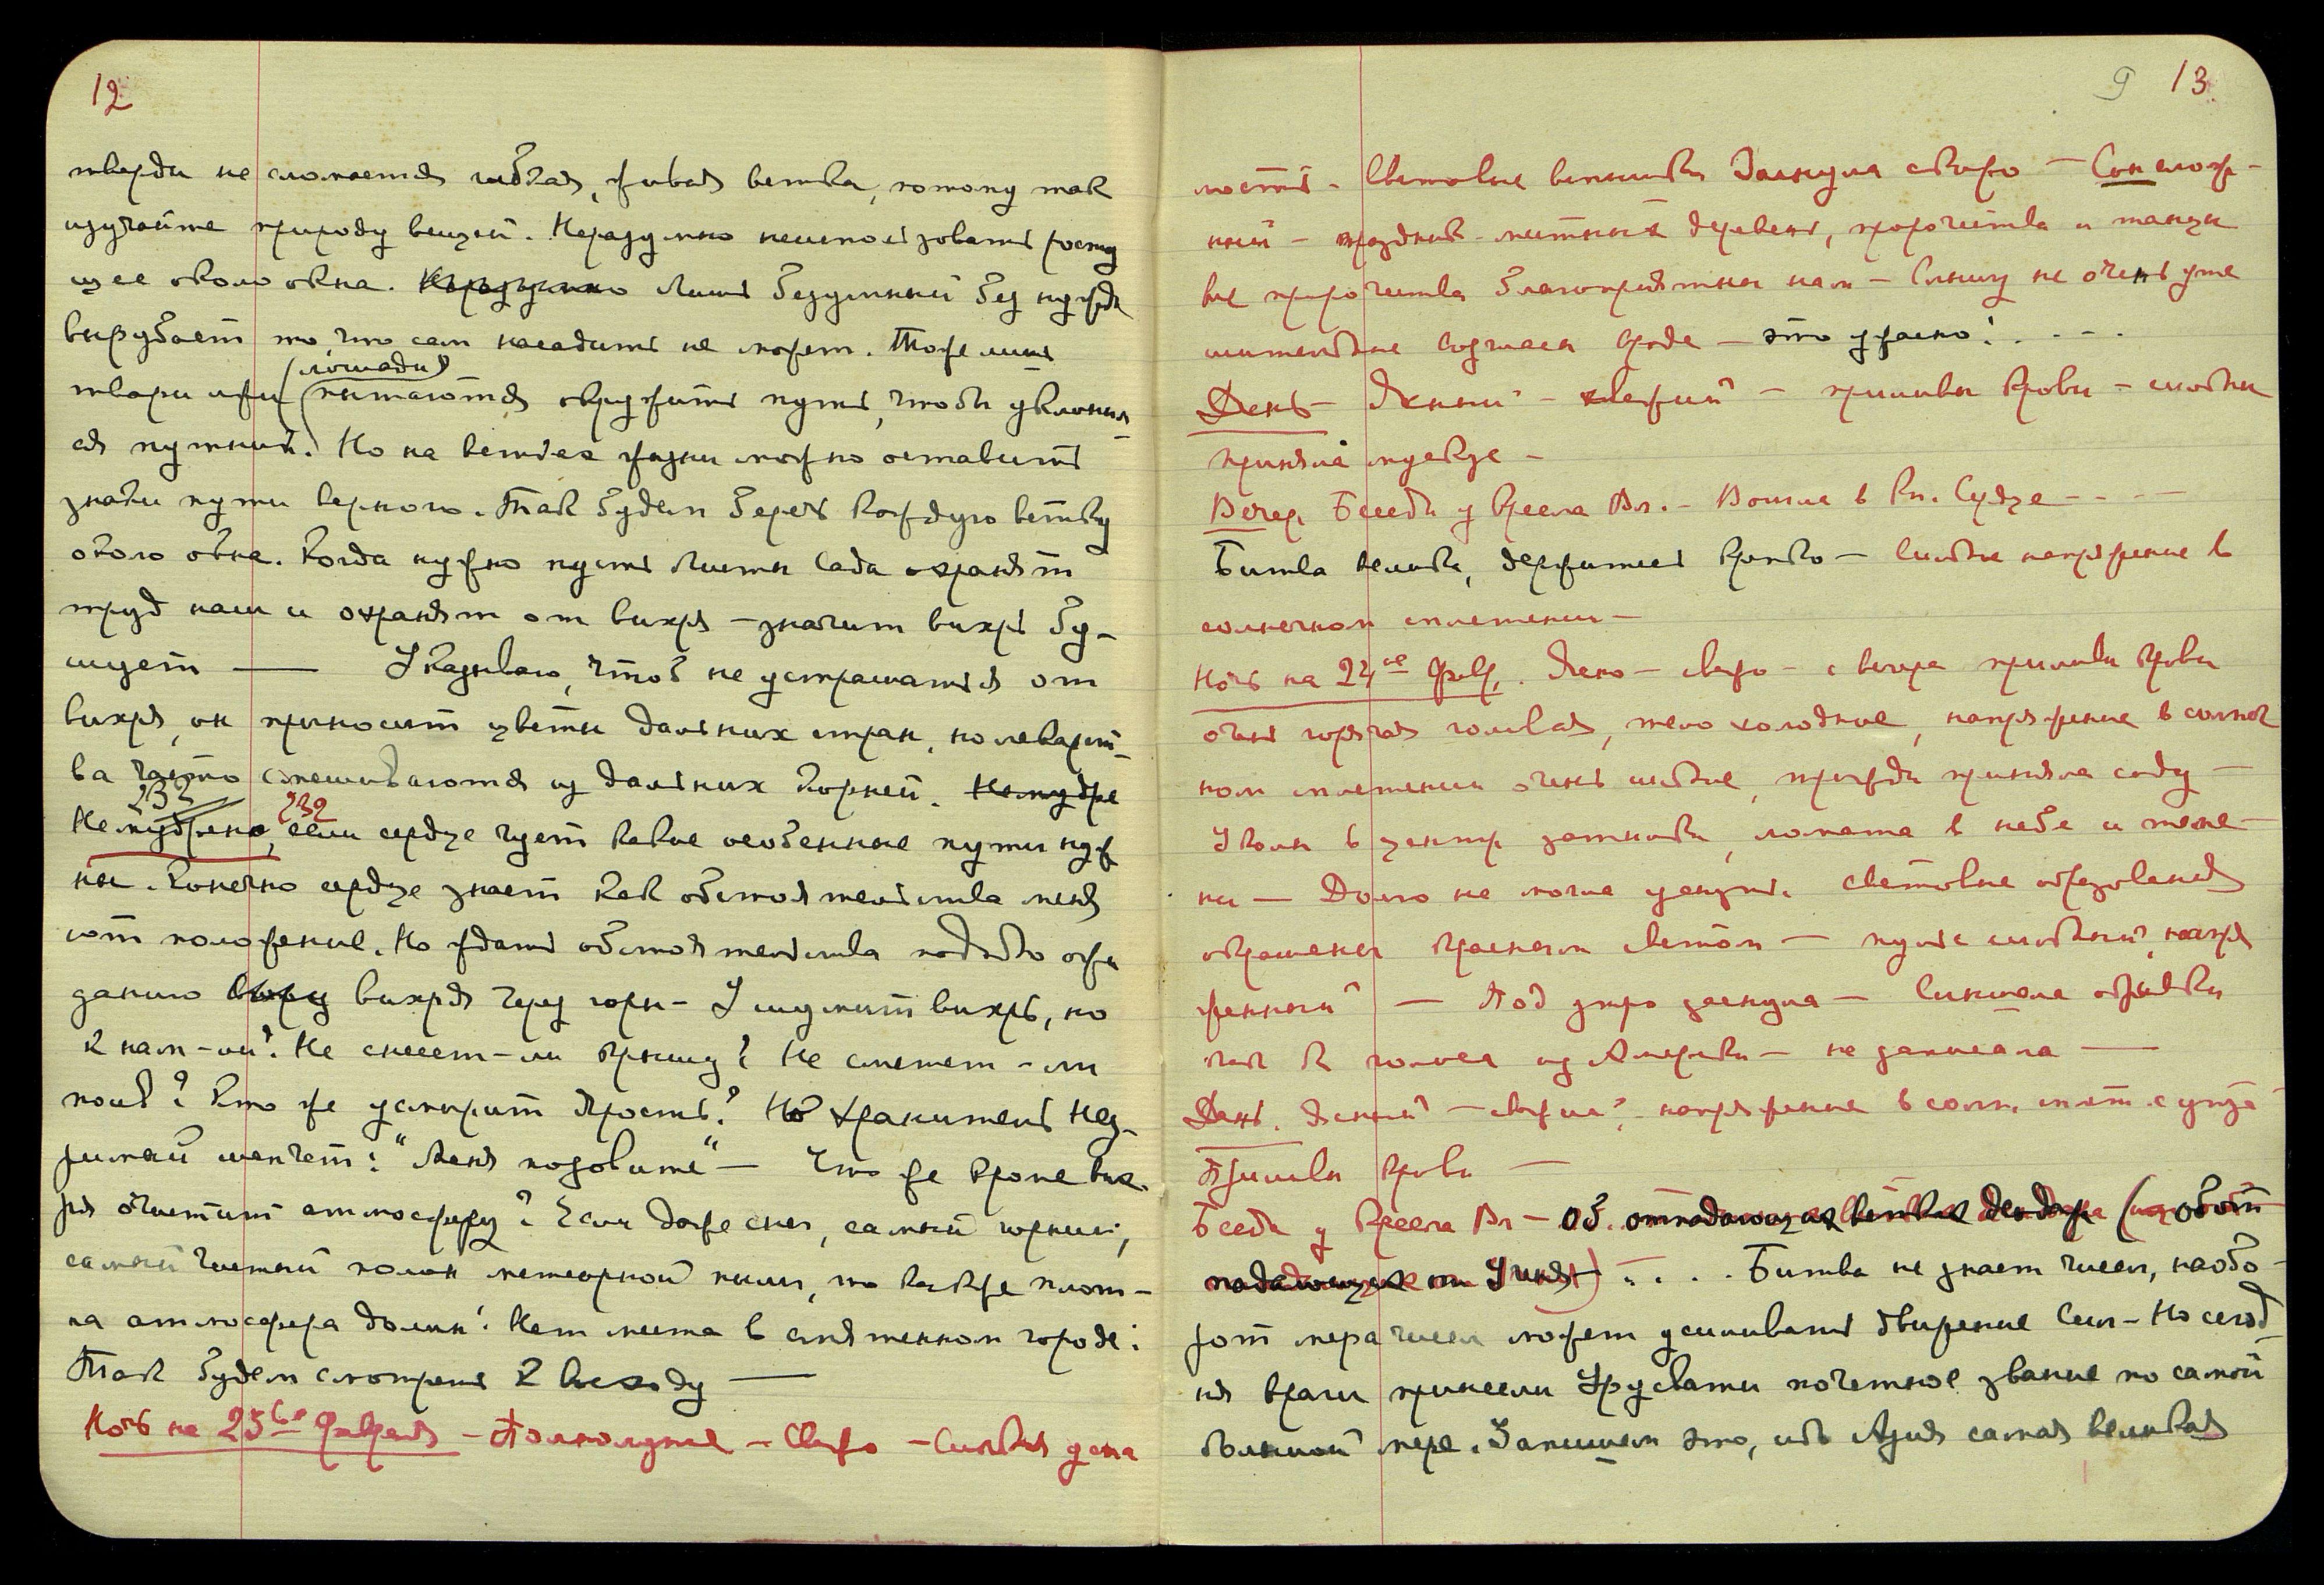 12
тверди не сломается гибкая, живая ветка, потому так
изучайте природу вещей. Неразумно неиспользовать расту
щее около окна. Неразумно Лишь безумный без нужды
вырубает то, что сам насадить не может. Тоже лишь
(лошади)
твари или (пытаются окружить путь, чтобы уклонил
ся путник). Но на ветвях жизни можно оставить
знаки пути верного. Так будем беречь каждую ветку
около окна. Когда нужно пусть листы Сада охранят
труд наш и охранят от вихря – значит вихрь бу-
шует — Указываю, чтоб не устрашаться от
вихря, он приносит цветы дальних стран, но лекарст-
ва часто смешиваются из дальних корней. Немудре
232 232
Немудрено, если сердце чует какие особенные пути нуж
ны. Конечно сердце знает как обстоятельства меня
ют положение. Но ждать обстоятельства подобно ожи
данию вихря через горы – И шумит вихрь, но
к нам-ли? Не снесет-ли крышу? Не сметет-ли
посев? Кто же усмирит ярость? Но Хранитель Нез-
римый шепчет: "Меня позовите" – Что же кроме вих-
ря очистит атмосферу? Если даже снег, самый горный,
самый чистый полон метеорной пыли, то как же плот-
на атмосфера долин! Нет места в смятенном городе!
Так будем смотреть к Восходу —
Ночь на 23ье Февраля – Полнолуние – Свежо – Сильная уста
9 13
лость. Световые вспышки Заснула скоро – Сон сложн-
ный – праздник местных деревень, пророчества и танцы
все пророчества благоприятны нам – Слышу не очень уже
шительные Созжаен Броде – это ужасно! . - - .
День – Ясный – свежий – приливы крови – слабы
приняла мускус –
Вечер. Беседа у Кресла Вл. – Вошла в Кн. Сердце - - - —
Битва велика, держитесь крепко – Сильное напряжение в
солнечном сплетении –
Ночь на 24ое Февр. Ясно – свежо – с вечера приливы крови
очень горячая голова, тело холодное, напряжение в солнеч
ном сплетении очень сильное, трижды приняла соду –
Уколы в центр затылка, ломота в небе и теме-
ни — Долго не могла уснуть. Световые образования
окрашены красным светом — пульс сильный, напря
женный — Под утро заснула — Слышала отрывки
из Америки – не записала —
День. Ясный – свежий, напряжение в солн. сплет. с утра
Приливы крови —
Беседа у Кресла Вл – Об отпадающих ветвях деодара (из обот
падающих от Учения) . . . . Битва не знает числа, наобо-
рот мера числа может усиливать движение Сил – Но сегод
ня враги принесли Урусвати почетное звание по самой
большой мере. Запишем это, ибо Агни самая великая